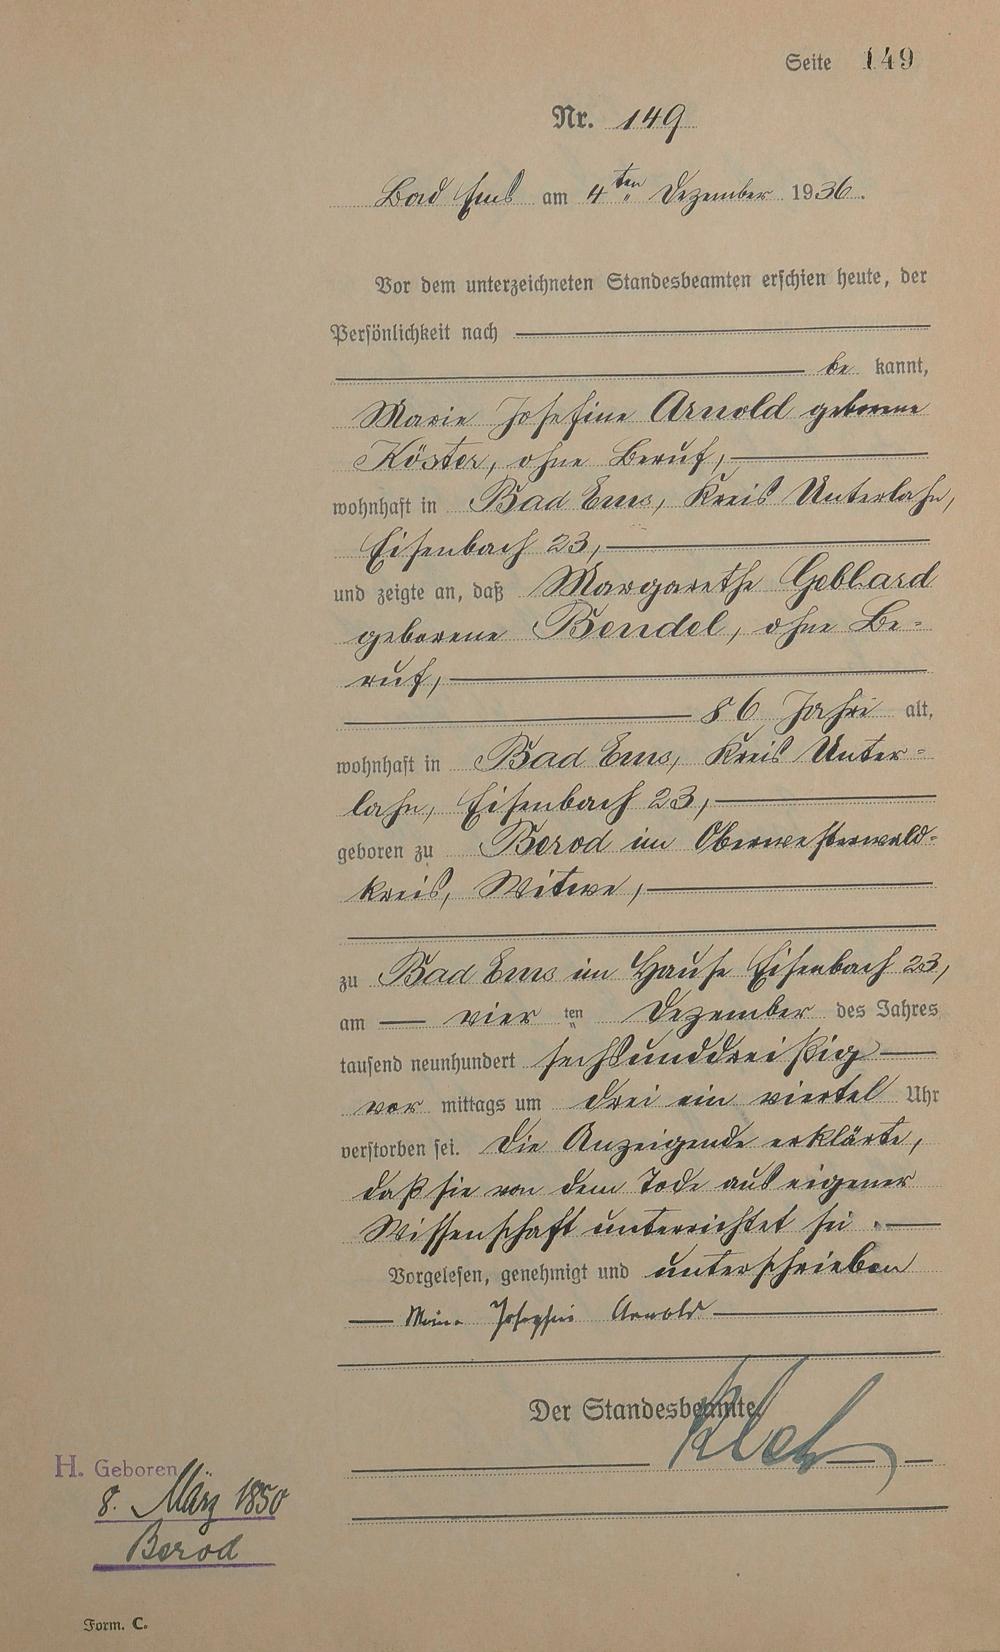 Seite 149
Nr. 149
Bad Ems am 4ten Dezember 1936.
Vor dem unterzeichneten Standesbeamten erschien heute, der
Persönlichkeit nach
be kannt,
Marie Josefine Arnold geborene
Köster, ohne Beruf,
wohnhaft in Bad Ems, Kreis Unterlahn,
Eisenbach 23,
und zeigte an, daß Margarethe Gebhard
geborene Bendel, ohne Be-
ruf,
86 Jahre alt,
wohnhaft in Bad Ems, Kreis Unter-
lahn, Eisenbach 23,
geboren zu Berod im Oberwesterwald-
kreis, Witwe,
zu Bad Ems im Hause Eisenbach 23,
am vier ten Dezember des Jahres
tausend neunhundert sechsunddreißig
vor mittags um drei ein viertel Uhr
verstorben sei. Die Anzeigende erklärte,
daß sie von dem Tode aus eigener
Wissenschaft unterrichtet sei.
Vorgelesen, genehmigt und unterschrieben
Josephine Arnold
Der Standesbeamte.
H. Geboren
8. März 1850
Berod
Form. C.